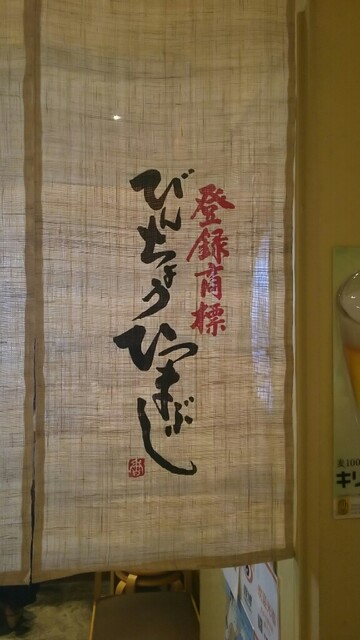 登録商標
びんちょう
ひつまぶし
麦100
キリ